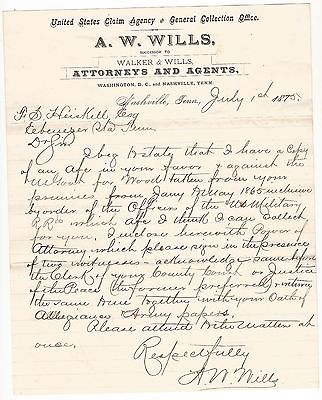 United States Claim Agency & General Collection Office.
A. W. WILLS,
SUCCESSOR TO
WALKER & WILLS,
ATTORNEYS AND AGENTS,
WASHINGTON, D. C., and NASHVILLE, TENN.
Nashville, Tenn., July 1st 1875.
F. S. Heiskell, Esq
Ebenezer Sta Tenn.
Dr Sir
I beg to state, that I have a Copy
of an in your favor & against the
US Govt for Wood taken from your
premises from Jany to May 1865 inclusive
by order of the Officers of the US Military
RRs which I think I can Collect
for you. I enclose herewith Power of
Attorney which please sign in the presence
of two witnesses - acknowledge same before
the Clerk of your County Court or Justice
of the Peace the former preferred & return
the same here together with your Oath of
Allegiance & Army papers.
Please attend to the matter at
once.
Respectfully
A. W. Wills